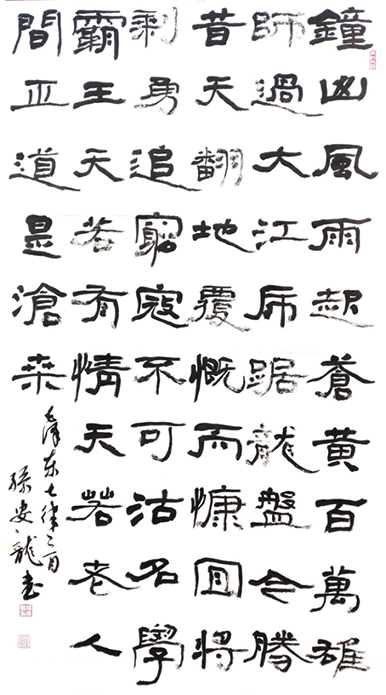 鐘山風雨起蒼黃百萬雄
師過大江虎踞龍盤今勝
昔天翻地覆慨而慷宜將
剩勇追窮寇不可沽名學
霸王天若有情天若老人
間正道是滄桑
毛澤东七律一首
孫安龍書